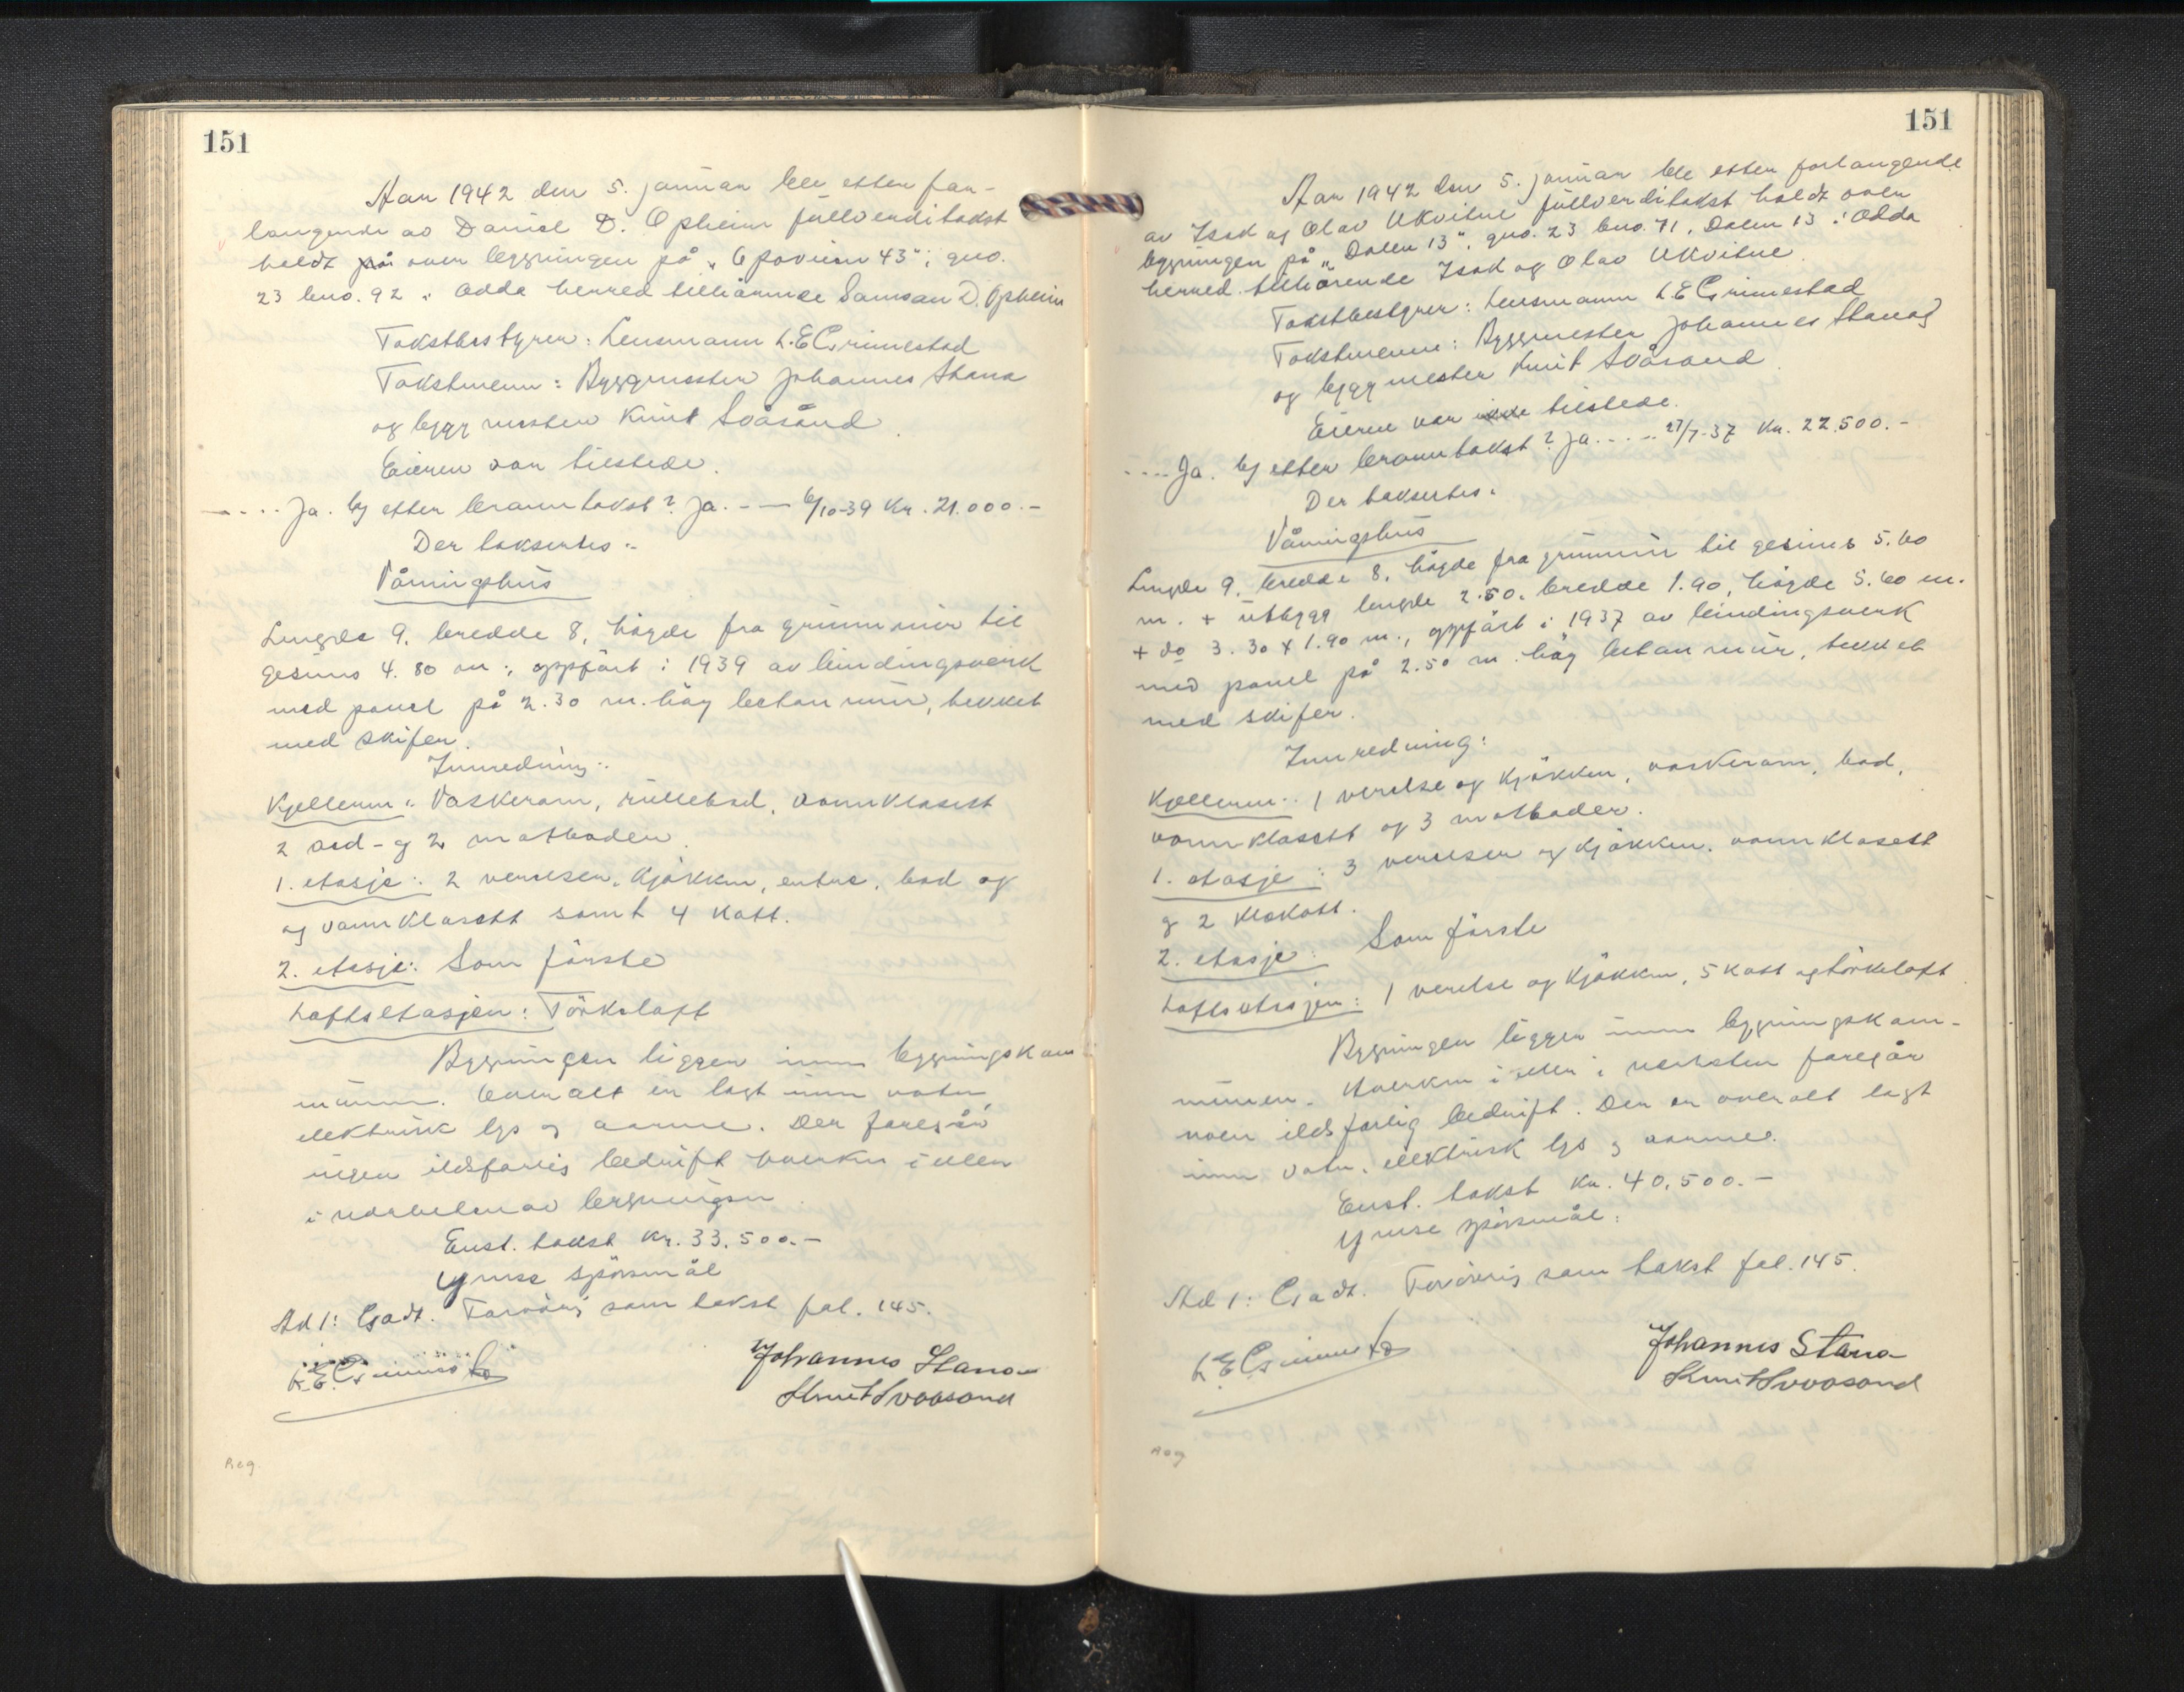 151
Aar 1942 den 5. januar ble etter for-
langende av Daniel D. Opheim fullverditakst
holdt på over bygningen på „ 43", gno.
23 bno. 92 i Odda herred tilhörende Samson D. Opheim
Takstbestyrer: Lensmann L.E Grimestad
Takstmenn: Byggmester Johannes Stana
og byggmester Knut Svåsand.
Eieren var tilstede.
---- Ja. Ny etter branntakst? Ja. -- 6/10-39 Kr. 21.000.-
Der taksertes:
Våningshus
Lengde 9, bredde 8, högde fra grunnmur til
gesims 4.80 m., oppfört i 1939 av bindingsverk
med panel på 2.30 m. höy betonmur, tekket
med skifer.
Innredning:
Kjelleren: Vaskerom, rullebod, vannklosett
2 ved- og 2 matboder.
1. etasje: 2 værelser, kjökken, entre, bad og
og vannklosett samt 4 kott.
2. etasje: Som förste
Loftsetasjen: Törkeloft
Bygningen ligger innen bygningskom
munen. Overalt er lagt inn vatn,
elektrisk lys og varme. Der foregår
ingen ildsfarlig bedrift hverken i eller
i nærheten av bygningen.
Enst. takst kr. 33.500.-
Ymse spörsmål
Ad 1: Godt. Forövrig som takst fol. 145.
L.E Grimestad
Johannes Stana
Knut Svaasand
Reg.
151
Aar 1942 den 5. januar ble etter forlangende
av Isak og Olav Ukvitne fullverditakst holdt over
bygningen på „Dalen 13", gno. 23 bno. 71, Dalen 13 i Odda
herred tilhörende Isak og Olav Ukvitne.
Takstbestyrer: Lensmann L.E Grimestad
Takstmenn: Byggmester Johannes Stana
og byggmester Knut Svåsand.
Eieren var ikke tilstede.
---- Ja. Ny etter branntakst? Ja. ---- 27/7-37 Kr. 22.500.-
Der taksertes:
Våningshus
Lengde 9, bredde 8, högde fra grunnmur til gesims 5.60
m. + utbygg lengde 2.50, bredde 1.90, högde 5.60 m.
+ do 3.30 x 1.90 m., oppfört i 1937 av bindingsverk
med panel på 2.50 m. höy betonmur, tekket
med skifer.
Innredning:
Kjelleren: 1 værelse og kjökken, vaskerom, bad,
vannklosett og 3 matboder.
1. etasje: 3 værelser og kjökken, vannklosett
og 2 klekott.
2. etasje: Som förste
Loftsetasjen: 1 værelse og kjökken, 5 kott og törkeloft
Bygningen ligger innen bygningskom-
munen. Hverken i eller i nærheten foregår
noen ildsfarlig bedrift. Der er overalt lagt
inn vatn, elektrisk lys og varme.
Enst. takst kr. 40.500.-
Ymse spörsmål:
Ad 1: Godt. Forövrig som takst fol. 145.
L.E Grimestad
Johannes Stana
Knut Svaasand
Reg